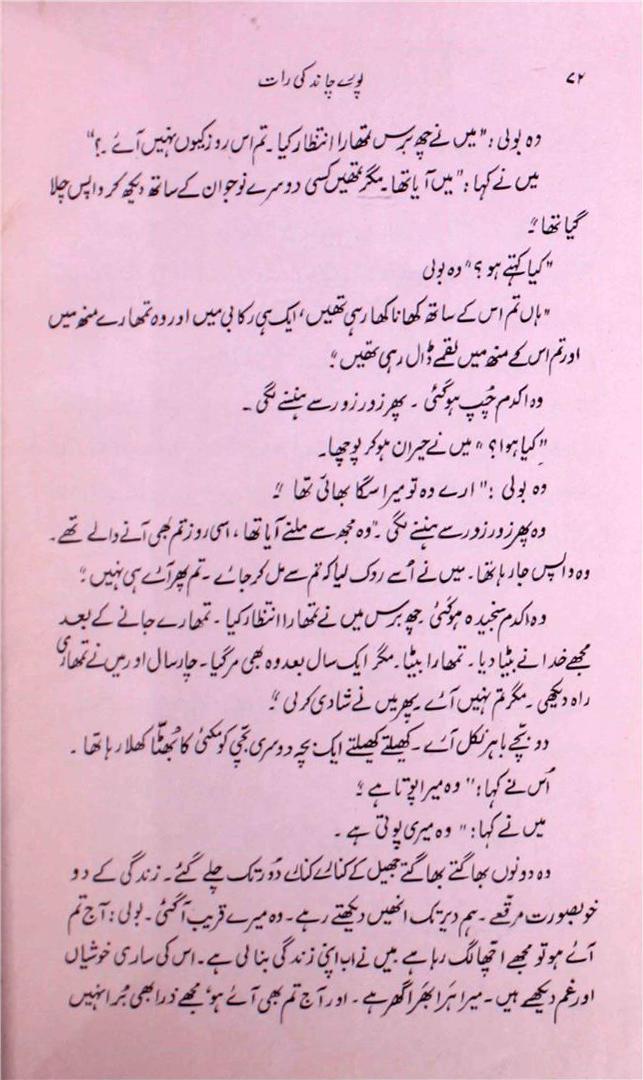 ۷۲ پورے چاند کی رات
وہ بولی: "میں نے چھ برس تمھارا انتظار کیا۔ تم اس روز کیوں نہیں آئے۔؟"
میں نے کہا: "میں آیا تھا۔ مگر تمھیں کسی دوسرے نوجوان کے ساتھ دیکھ کر واپس چلا
گیا تھا۔"
"کیا کہتے ہو؟" وہ بولی
"ہاں تم اس کے ساتھ کھانا کھا رہی تھیں، ایک ہی رکابی میں اور وہ تمھارے منھ میں
اور تم اس کے منھ میں لقمے ڈال رہی تھیں۔"
وہ اکدم چُپ ہو گئی ۔ پھر زور زور سے ہنسنے لگی ۔
"کیا ہوا؟" میں نے حیران ہو کر پوچھا۔
وہ بولی: "ارے وہ تو میرا سگا بھائی تھا۔"
وہ پھر زور زور سے ہنسنے لگی۔ "وہ مجھ سے ملنے آیا تھا، اسی روز تم بھی آنے والے تھے۔
وہ واپس جا رہا تھا۔ میں نے اُسے روک لیا کہ تم سے مل کر جائے۔ تم پھر آئے ہی نہیں۔"
وہ اکدم سنجیدہ ہو گئی چھ برس میں نے تمھارا انتظار کیا۔ تمھارے جانے کے بعد
مجھے خدا نے بیٹا دیا۔ تمھارا بیٹا۔ مگر ایک سال بعد وہ بھی مر گیا۔ چار سال اور میں نے تمھاری
راہ دیکھی۔ مگر تم نہیں آئے۔ پھر میں نے شادی کر لی۔"
دو بچّے باہر نکل آئے۔ کھیلتے کھیلتے ایک بچہ دوسری بچّی کو مکئی کا بُھٹّا کھلا رہا تھا ۔
اُس نے کہا: "وہ میرا پوتا ہے۔"
میں نے کہا: "وہ میری پوتی ہے ۔
وہ دونوں بھاگتے بھاگتے جھیل کے کنارے کنارے دُور تک چلے گئے۔ زندگی کے دو
خوبصورت مرقّعے۔ ہم دیر تک انھیں دیکھتے رہے۔ وہ میرے قریب آ گئی۔ بولی: آج تم
آئے ہو تو مجھے اچھا لگ رہا ہے میں نے اب اپنی زندگی بنا لی ہے۔ اس کی ساری خوشیاں
اور غم دیکھے ہیں۔ میرا ہَرا بھَرا گھر ہے۔ اور آج تم بھی آئے ہو، مجھے ذرا بھی بُرا نہیں